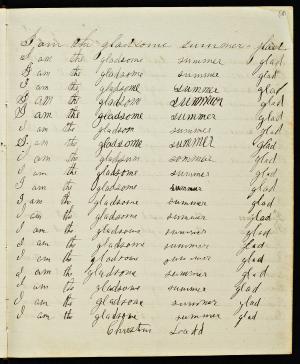 50
I am the gladsome summer glad
I am the gladsome summer glad
I am the gladsome summer glad
I am the gladsome summer glad
I am the gladsom summer glad
I am the gladsome summer glad
I am the gladsom summer glad
I am the gladsome summer glad
I am the gladsum sommer glad
I am the gladsome summer glad
I am the gladsome summer glad
I am the gladsome summer glad
I am the gladsome summer glad
I am the gladsome summer glad
I am the gladsome summer glad
I am the gladsome summer glad
I am the gladsome summer glad
I am the gladsome summer glad
I am the gladsome summer glad
I am the gladsome summer glad